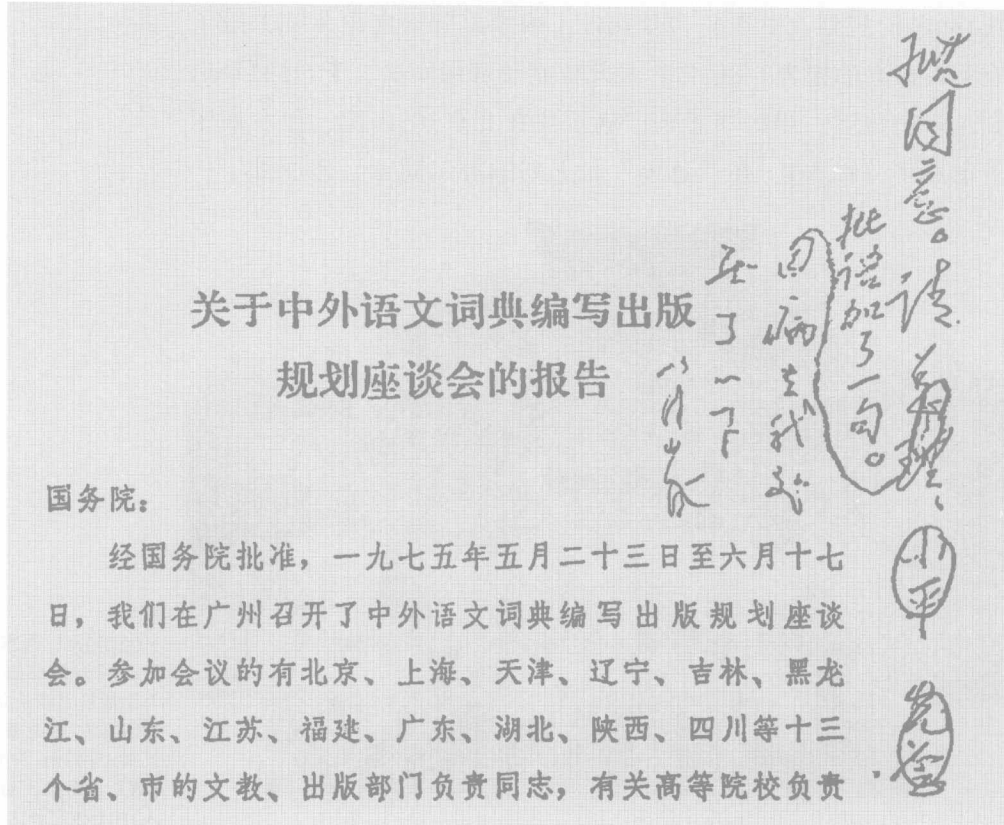 拟同意。请总理、小平、先念
批语加了一句。
因病在我处
压了一下
八月
关于中外语文词典编写出版
规划座谈会的报告
国务院：
经国务院批准，一九七五年五月二十三日至六月十七
日，我们在广州召开了中外语文词典编写出版规划座谈
会。参加会议的有北京、上海、天津、辽宁、吉林、黑龙
江、山东、江苏、福建、广东、湖北、陕西、四川等十三
个省、市的文教、出版部门负责同志，有关高等院校负责